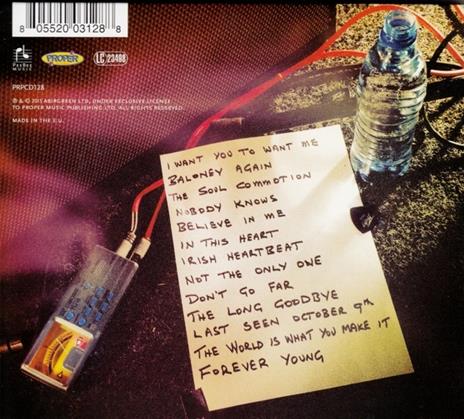 8 05520 03128 8
PeeDee
MUSIC
PROPER
LC 23488
PRPCD128
℗ & © 2015 ABIRGREEN LTD, UNDER EXCLUSIVE LICENSE
TO PROPER MUSIC PUBLISHING LTD. ALL RIGHTS RESERVED
MADE IN THE E.U.
I WANT YOU TO WANT ME
BALONEY AGAIN
THE SOUL COMMOTION
NOBODY KNOWS
BELIEVE IN ME
IN THIS HEART
IRISH HEARTBEAT
NOT THE ONLY ONE
DON'T GO FAR
THE LONG GOODBYE
LAST SEEN OCTOBER 9TH
THE WORLD IS WHAT YOU MAKE IT
FOREVER YOUNG